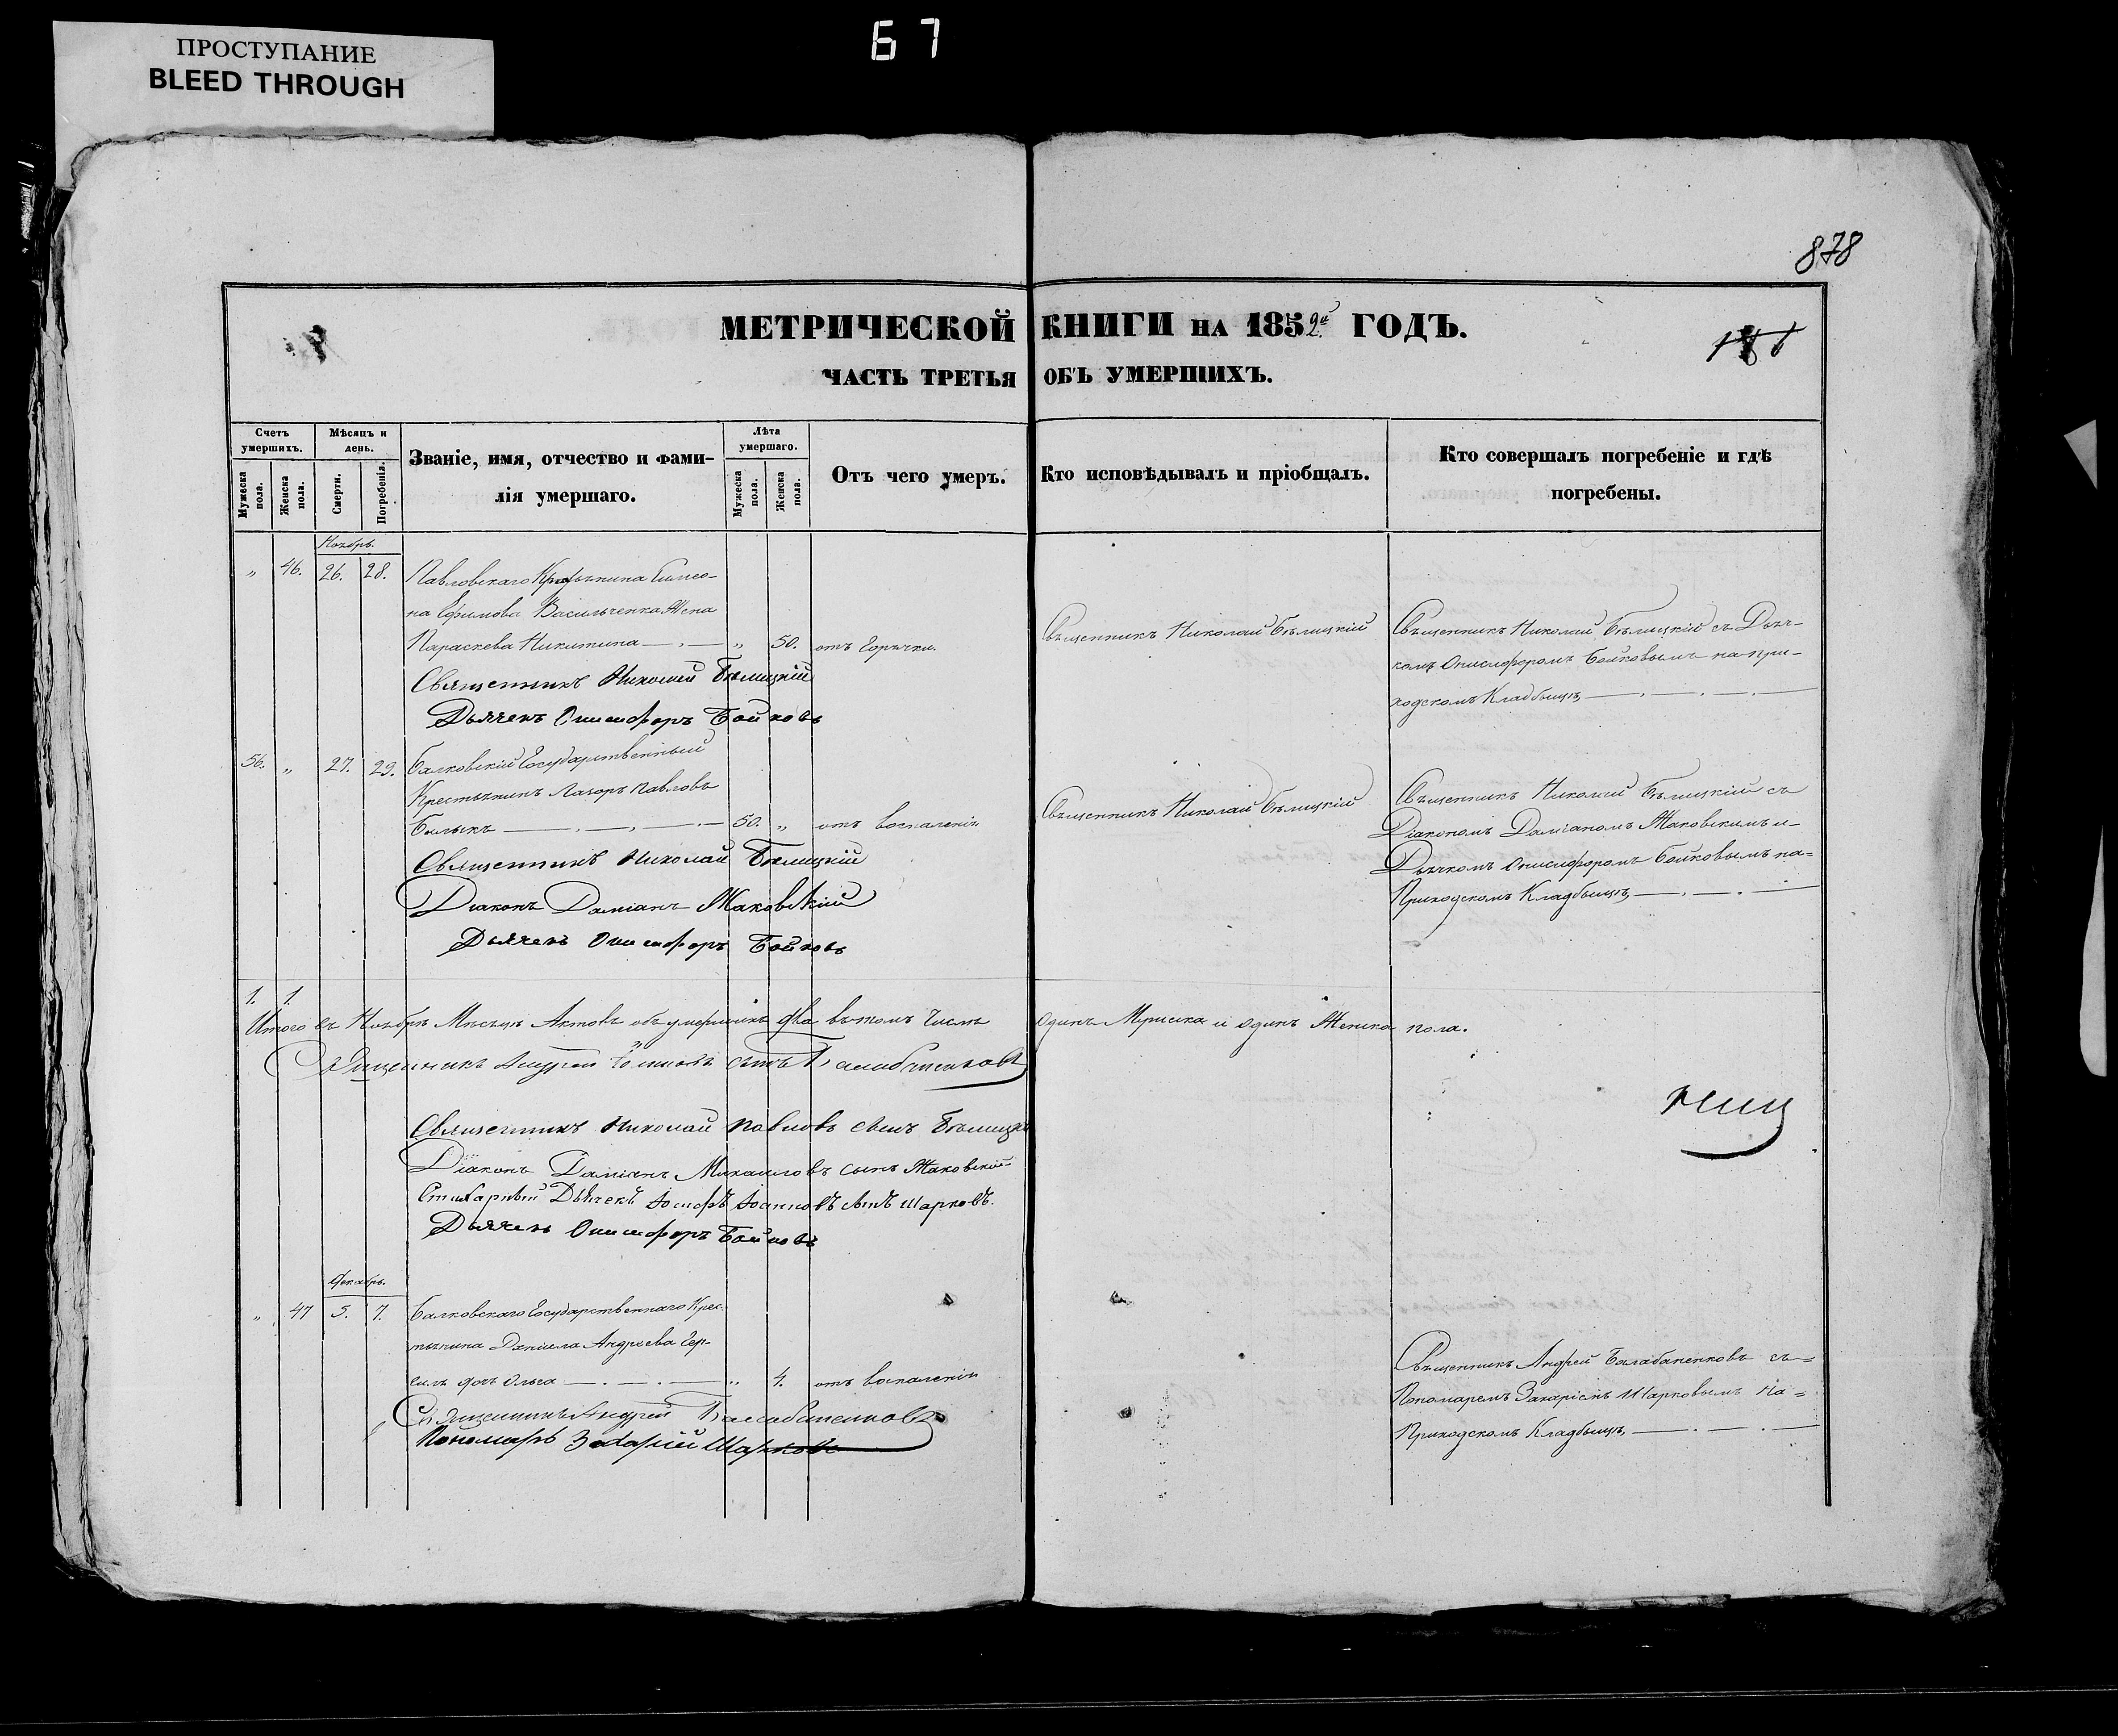 ПРОСТУПАНИЕ
BLEED THROUGH
67
878
МЕТРИЧЕСКОЙ КНИГИ НА 1852й ГОДЪ.
ЧАСТЬ ТРЕТЬЯ ОБЪ УМЕРШИХЪ.
Счетъ умершихъ.
Мужеска пола.
Женска пола.
Мѣсяцъ и день.
Смерти.
Погребенія.
Званіе, имя, отчество и фами-
лія умершаго.
Лѣта умершаго.
Мужеска пола.
Женска пола.
Отъ чего умеръ.
Кто исповѣдывалъ и пріобщалъ.
Кто совершалъ погребеніе и гдѣ
погребены.
Ноябрь.
„ 46. 26. 28. Павловскаго Симео-
на Ефимова Васильченка Жена
Параскева Никитина „ 50. отъ горячки.
Священникъ Николай Бѣлицкій
Священникъ Николай Бѣлицкій съ Дьяч-
комъ Онисифоромъ Бойковымъ на при-
ходскомъ Кладбищѣ
Священникъ Николай Бѣлицкій
Дьячекъ Онисифоръ Бойковъ
56. „ 27. 29. Балковскій Государственный
Крестьянинъ Лазоръ Павловъ
Билыкъ 50. „ отъ воспаленія
Священникъ Николай Бѣлицкій
Священникъ Николай Бѣлицкій съ
Діакономъ Даміаномъ Жаковскимъ и
Дьячкомъ Онисифоромъ Бойковымъ на=
Приходскомъ Кладбищѣ
Священникъ Николай Бѣлицкій
Діаконъ Даміанъ Жаковскій
Дьячекъ Онисифоръ Бойковъ
1. 1.
Итого въ Ноябрѣ Мѣсяцѣ Актовъ объ умершихъ два въ томъ числѣ одинъ Мужеска и одинъ Женска пола.
Священникъ Андрей сынъ Балабаненковъ
Священникъ Николай Павловъ сынъ
Діаконъ Даміанъ Михаиловъ сынъ Жаковскій
Стихарный Дьячекъ Іосифъ Іоанновъ сынъ Шарковъ.
Дьячекъ Онисифоръ Бойковъ
Декабрь.
„ 47 5. 7. Балковскаго Государственнаго Крес-
тьянина Даніила Андреева
дочь Ольга „ 4. отъ воспаленія
Священникъ Андрей Балабаненковъ съ=
Пономаремъ Захаріемъ Шарковымъ на=
Приходскомъ Кладбищѣ
Священникъ Андрей Балабаненковъ
Пономарь Захарій Шарковъ